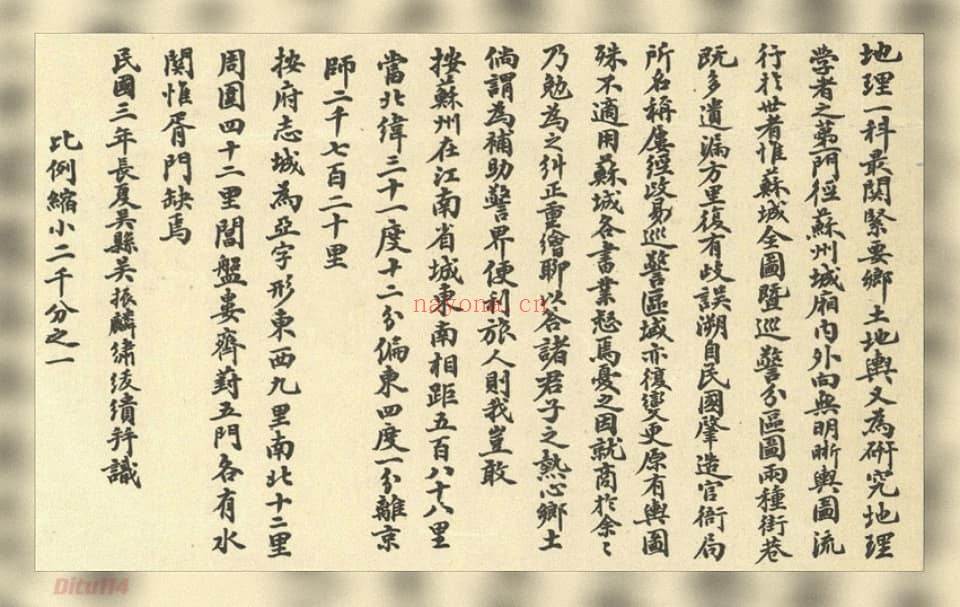 地理一科最関緊要鄉土地輿又為研究地理
学者之第一門徑蘇州城廂内外向無明晰輿圖流
行扵世者惟蘇城全圖暨巡警分區圖兩種街巷
既多遺漏方里復有歧誤溯自民國肇造官衙局
所名稱屢經改易巡警區域亦復變更原有輿圖
殊不適用蘇城各書業慭焉憂之因就商扵余〻
乃勉為之糾正重繪聊以答諸君子之熱心鄉土
倘謂為補助警界便利旅人則我豈敢
按蘇州在江南省城東南相距五百八十八里
當北緯三十一度十二分偏東四度一分離京
師二千七百二十里
按府志城為亞字形東西九里南北十二里
周圍四十二里閶盤婁齊葑五門各有水
関惟胥門缺焉
民國三年長夏吳縣吳振麟繡
比例縮小二千分之一
nayona.cn
Ditu114